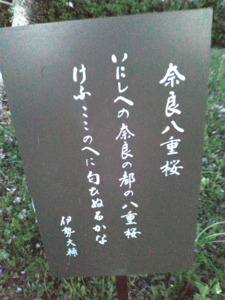 奈良八重桜
いにしへの奈良の都の八重桜
けふここのへに匂ひぬるかな
伊勢大輔